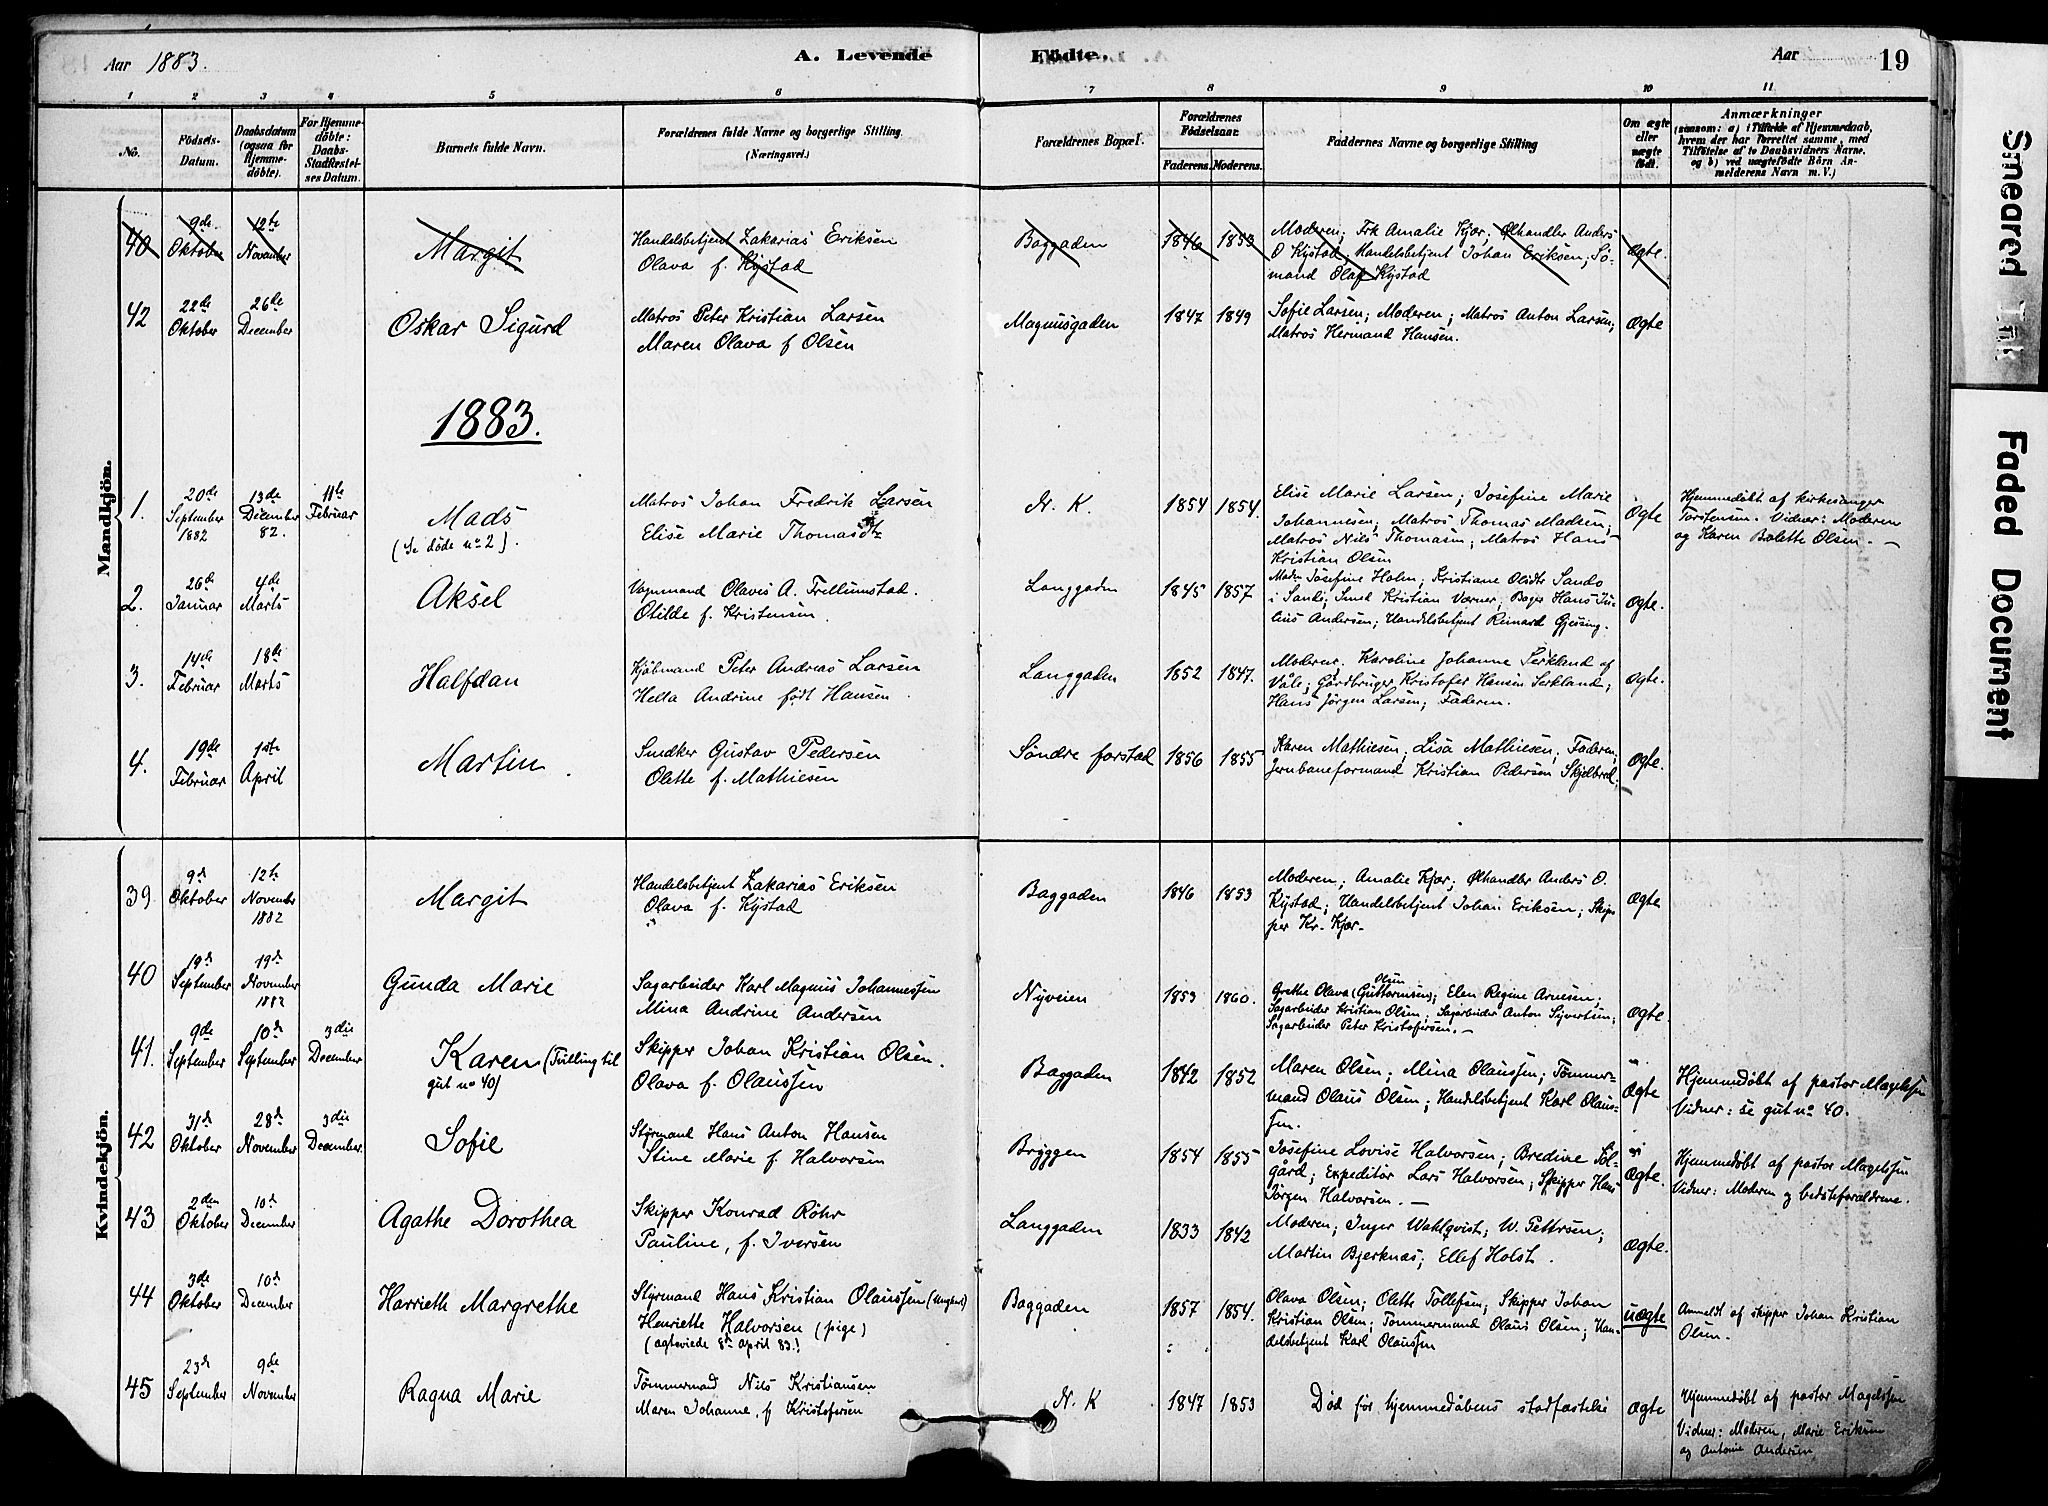 Aar 1883.
A. Levende Födte.
Aar
19
1 2 3 4 5 6 7 8 9 10 11
No.
Födsels-
Datum.
Daabsdatum
(ogsaa for
Hjemme-
döbte).
For Hjemme-
döbte:
Daabs-
Stadfæstel-
ses Datum.
Barnets fulde Navn.
Forældrenes fulde Navne og borgerlige Stilling.
(Næringsvei.)
Forældrenes Bopæl.
Forældrenes
Födselsaar.
Faderens. Moderens.
Faddernes Navne og borgerlige Stilling
Om ægte
eller
uægte
födt.
Anmærkninger
(saasom: a) i Tilfælde af Hjemmedaab,
hvem der har forrettet samme, med
Tilföielse af to Daabsvidners Navne,
og b) ved uægtefödte Börn An-
melderens Navn m. V.)
Mandkjön.
40
9de
Oktober
12te
November
Margit
Handelsbetjent Zakarias Eriksen
Olava f. Kystad
Baggaden
1846 1853
Moderen; Frk Amalie Kjær. Ølhandler Anders
O Kystad; Handelsbetjent Johan Eriksen; Sø-
mand Olaf Kystad
ægte.
42
22de
Oktober
26de
December
Oskar Sigurd
Matros Peter Kristian Larsen
Maren Olava f Olsen
Magnusgaden
1847 1849
Sofie Larsen; Moderen; Matros Anton Larsen;
Matros Hermand Hansen.
Ægte
1883.
1.
20de
September
1882
13de
December
82.
11te
Februar
Mads
(Se døde no 2).
Matros Johan Fredrik Larsen
Elise Marie Thomasdtr
N. K.
1854 1854.
Elise Marie Larsen; Josefine Marie
Johannesen; Matros Thomas Madsen;
Matros Nils Thomasen; Matros Hans
Kristian Olsen
Ægte
Hjemmedøbt af kirkesanger
Torstensen. Vidner: Moderen
og Karen Bolette Olsen. —
2.
26de
Januar
4de
Marts
Aksel
Vognmand Olaves A. Trellumstad.
Otilde f. Kristensen.
Langgaden
1845 1857
Mod Josefine Holm; Kristiane Olsdtr Sando
i Sande; Smed Kristian Værner; Bager Hans Ju-
lius Andersen; Handelsbetjent Reinard Gjessing.
Ægte.
3.
14de
Februar
18de
Marts
Halfdan
Kjøbmand Peter Andreas Larsen
Helta Andrine født Hansen.
Langgaden
1852 1847.
Moderen. Karoline Johanne Serkland af
Våle; Gårdbruger Kristofer Hansen Serkland;
Hans Jørgen Larsen; Faderen.
Ægte.
4.
19de
Februar
1ste
April
Martin.
Snedker Gustav Pedersen
Olette f. Mathiesen
Søndre forstad
1856 1855
Karen Mathiesen; Lisa Mathiesen; Faderen;
Jernbaneformand Kristian Pedersen Skjelbred.
Ægte.
Kvindekjön.
39
9de
Oktober
12te
November
1882
Margit
Handelsbetjent Zakarias Eriksen
Olava f. Kystad
Baggaden
1846 1853
Moderen; Amalie Kjær; Ølhandler Anders O.
Kystad; Handelsbetjent Johan Eriksen; Skip-
per Kr. Kjær.
Ægte
40
19de
September
19de
November
1882
Gunda Marie
Sagarbeider Karl Magnus Johannessen
Mina Andrine Andersen
Nyveien
1853 1860.
Olsen
Grethe Olava (Guttormsen); Elen Regine Arnesen;
Sagarbeider Kristian Olsen; Sagarbeider Anton Syvertsen;
Sagarbeider Peter Kristofersen. —
Ægte
41.
9de
September
10de
September
3die
December
Karen (Tvilling til
gut no 40)
Skipper Johan Kristian Olsen.
Olava f. Olaussen
Baggaden
1842 1852
Maren Olsen; Mina Olaussen; Tømmer-
mand Olaus Olsen; Handelsbetjent Karl Olaus-
sen.
Ægte
Hjemmedøbt af pastor Magelssen
Vidner: se gut no 40.
42
31de
Oktober
28de
November
3die
December
Sofie
Styrmand Hans Anton Hansen
Stine Marie f. Halvorsen
Bryggen
1854 1855
Josefine Lovise Halvorsen; Bredine Sol-
gård; Expeditør Lars Halvorsen; Skipper Hans
Jørgen Halvorsen. —
Ægte.
Hjemmedøbt af pastor Magelssen
Vidner: Moderen og bedsteforældrene.
43
2den
Oktober
10de
December
Agathe Dorothea
Skipper Konrad Røhr
Pauline, f. Iversen
Langgaden
1833 1842
Moderen; Inger Wahlqvist; W. Pettersen;
Martin Bjerknæs; Ellef Holst.
Ægte.
44
3de
Oktober
10de
December
Harrieth Margrethe
Styrmand Hans Kristian Olaussen (ungkarl)
Henriette Halvorsen (pige)
(ægteviede 8de april 83!)
Baggaden
1857 1854.
Olava Olsen; Olette Tollefsen; Skipper Johan
Kristian Olsen; Tømmermand Olaus Olsen; Han-
delsbetjent Karl Olaussen
uægte
Anmeldt af skipper Johan Kristian
Olsen.
45
23de
September
9de
November
Ragna Marie
Tømmermand Nils Kristiansen
Maren Johanne f Kristofersen
N. K
1847 1853
Død før hjemmedåbens stadfæstelse
Ægte
Hjemmedøbt af pastor Magelssen
Vidner: Moderen, Marie Eriksen
og Antonie Andersen
Smeared Ink
Faded Document